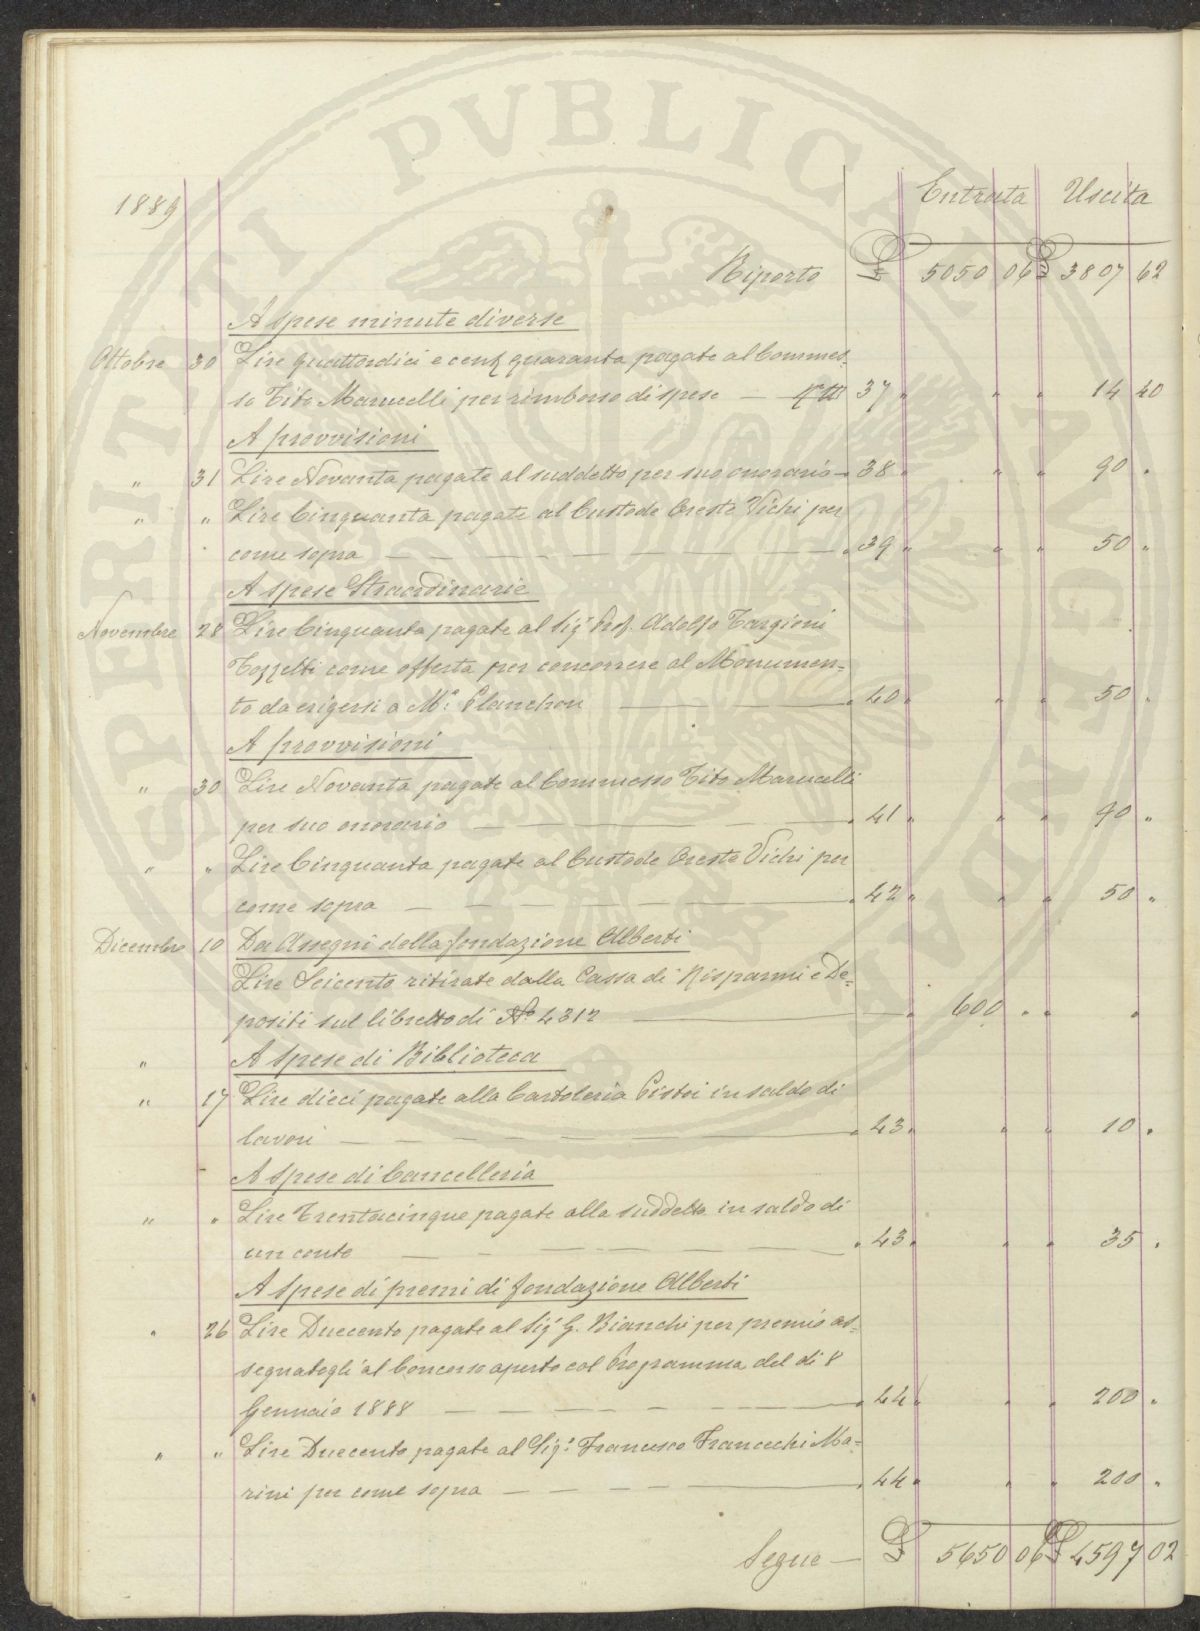 PROSPERITATI PVBLICAE AVGENDAE
1889 Entrata Uscita
Riporto £ 5050 06 £ 3807 62
A spese minute diverse
Ottobre 30 Lire quattordici e cent quaranta pagate al Commes-
so Tito Marucelli per rimborso di spese — 37 " " " 14 40
A provvisioni
" 31 Lire Novanta pagate al suddetto per suo onorario — 38 " " " 90 "
" " Lire Cinquanta pagate al Custode Oreste Vichi per
come sopra — " 39 " " " 50 "
A spese Straordinarie
Novembre 28 Lire Cinquanta pagate al Sigr Prof. Adolfo Targioni
Tozzetti come offerta per concorrere al Monumen=
to da erigersi a Mr. Planchon — " 40 " " " 50 "
A provvisioni
" 30 Lire Novanta pagate al Commesso Tito Marucelli
per suo onorario — " 41 " " " 90 "
" " Lire Cinquanta pagate al Custode Oreste Vichi per
come sopra — " 42 " " " 50 "
Dicembre 10 Da Assegni della fondazione Alberti
Lire Seicento ritirate dalla Cassa di Risparmi e De=
positi sul libretto di No 4312 — " 600 " " "
" A Spese di Biblioteca
" 17 Lire dieci pagate alla Cartoleria Pistoi in saldo di
lavori — " 43 " " " 10 "
A spese di Cancelleria
" " Lire Trentacinque pagate alla suddetta in saldo di
un conto — " 43 " " " 35 "
A Spese di premi di fondazione Alberti
" 26 Lire Duecento pagate al Sigr G. Bianchi per premio as=
segnatogli al Concorso aperto col Programma del dì 8
Gennaio 1888 — " 44 " " " 200 "
" " Lire Duecento pagate al Sigr. Francesco Franceschi Ma=
rini per come sopra — " 44 " " " 200 "
Segue — £ 5650 06 £ 4597 02